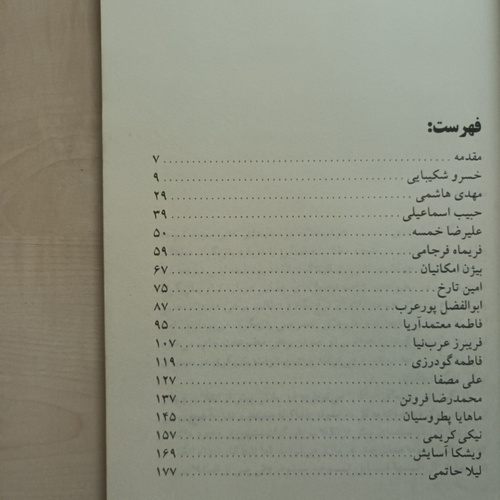 فهرست:
مقدمه ........ ۷
خسرو شکیبایی ........ ۹
مهدی هاشمی ........ ۲۹
حبیب اسماعیلی ........ ۳۹
علیرضا خمسه ........ ۵۰
فریماه فرجامی ........ ۵۹
بیژن امکانیان ........ ۶۷
امین تارخ ........ ۷۵
ابوالفضل پورعرب ........ ۸۷
فاطمه معتمدآریا ........ ۹۵
فریبرز عرب‌نیا ........ ۱۰۷
فاطمه گودرزی ........ ۱۱۹
علی مصفا ........ ۱۲۷
محمدرضا فروتن ........ ۱۳۷
ماهایا پطروسیان ........ ۱۴۵
نیکی کریمی ........ ۱۵۷
ویشکا آسایش ........ ۱۶۹
لیلا حاتمی ........ ۱۷۷